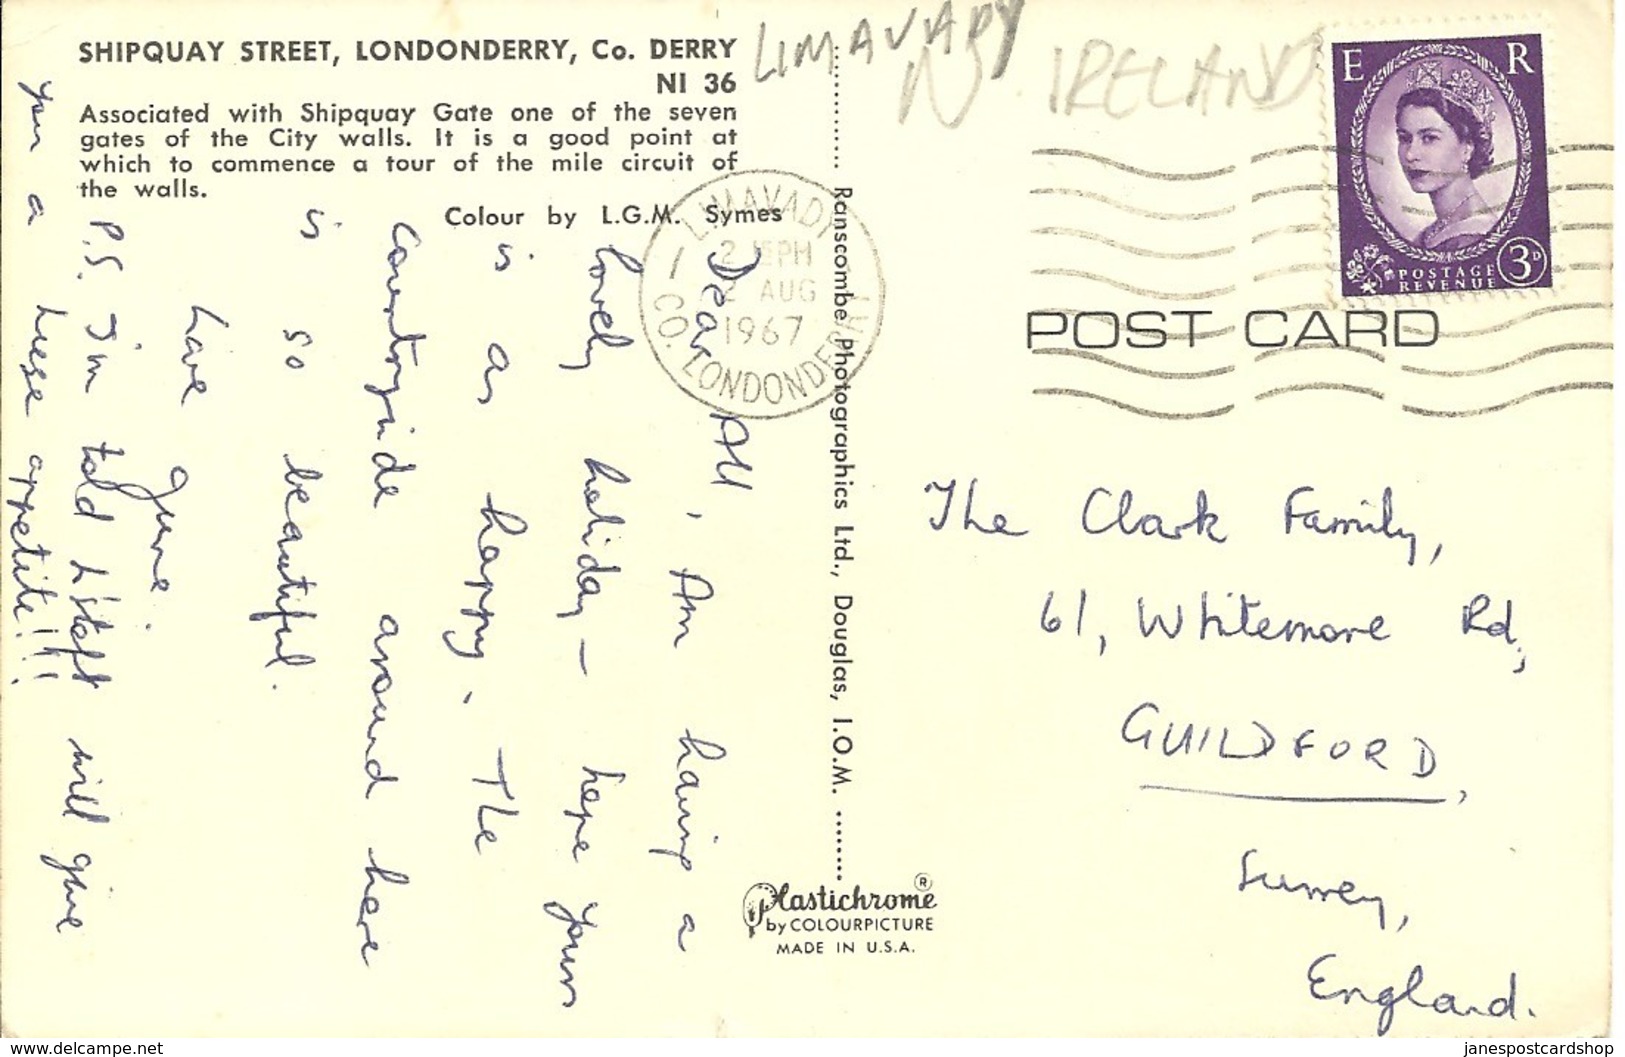 SHIPQUAY STREET, LONDONDERRY, Co. DERRY
NI 36
Associated with Shipquay Gate one of the seven
gates of the City walls. It is a good point at
which to commence a tour of the mile circuit of
the walls.
Colour by L.G.M. Symes
LIMAVADY
N IRELAND
E R
POSTAGE
REVENUE
3D
LIMAVADY
2 15PM
2 AUG
1967
CO. LONDONDERRY
POST CARD
Ranscombe Photographics Ltd., Douglas, I.O.M.
Dear All, Am having a
lovely holiday – hope yours
is as happy. The
countryside around here
is so beautiful.
Love
June.
P.S. I'm told L'staff will give
you a huge appetite!!!
The Clark Family,
61, Whitemore Rd.,
GUILDFORD,
Surrey,
England.
Plastichrome ®
by COLOURPICTURE
MADE IN U.S.A.
https://www.delcampe.net
janespostcardshop